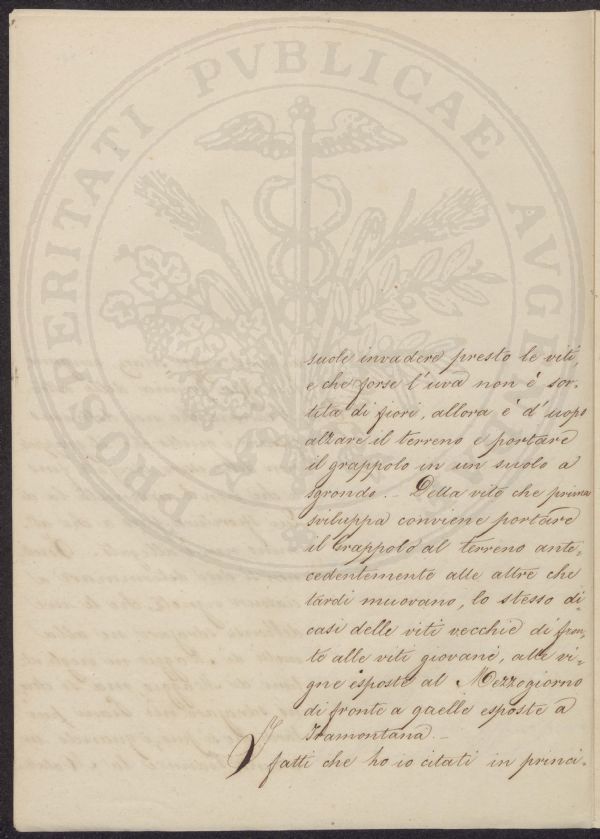 suole invadere presto le viti,
e che forse l'uva non è sor-
tita di fiori, allora è d'uopo
alzare il terreno e portare
il grappolo in un suolo a
sgrondo. _ Della vite che prima
sviluppa conviene portare
il Grappolo al terreno ante-
cedentemente alle altre che
tardi muovano, lo stesso di-
casi delle viti vecchie di fron-
te alle viti giovani, alle vi-
gne esposte al Mezzogiorno
di fronte a quelle esposte a
Tramontana. _
I fatti che ho io citati in princi-
PROSPERITATI PVBLICAE AVGENDAE